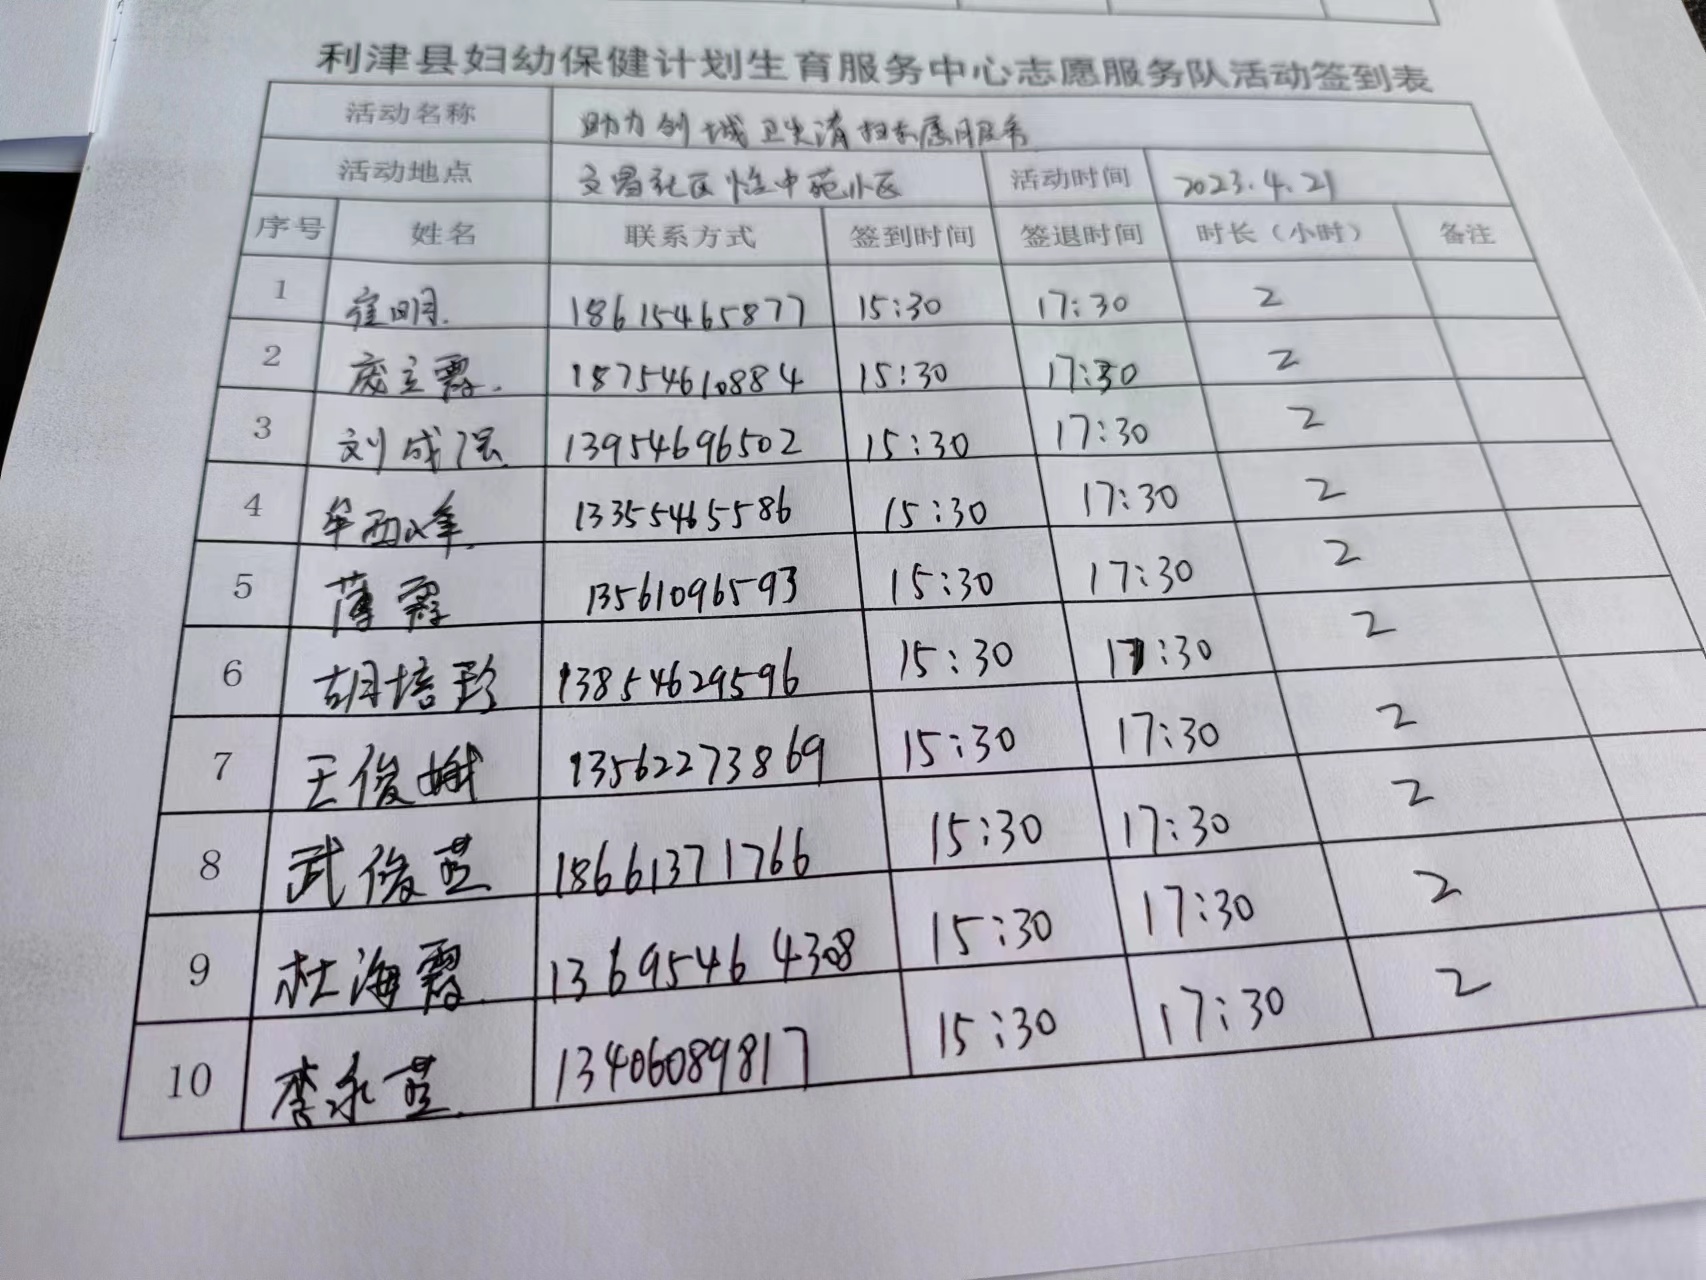 利津县妇幼保健计划生育服务中心志愿服务队活动签到表
活动名称 助力创城卫生清扫志愿服务
活动地点 文昌社区 中苑小区 活动时间 2023.4.21
序号 姓名 联系方式 签到时间 签退时间 时长（小时） 备注
1 崔明 18615465877 15:30 17:30 2
2 庞立霞 18754610884 15:30 17:30 2
3 刘成强 13954696502 15:30 17:30 2
4 牟西峰 13355465586 15:30 17:30 2
5 薄霞 13561096593 15:30 17:30 2
6 胡培珍 13854629596 15:30 17:30 2
7 王俊娥 13562273869 15:30 17:30 2
8 武俊芝 18661371766 15:30 17:30 2
9 杜海霞 13695464308 15:30 17:30 2
10 李永芝 13406089817 15:30 17:30 2